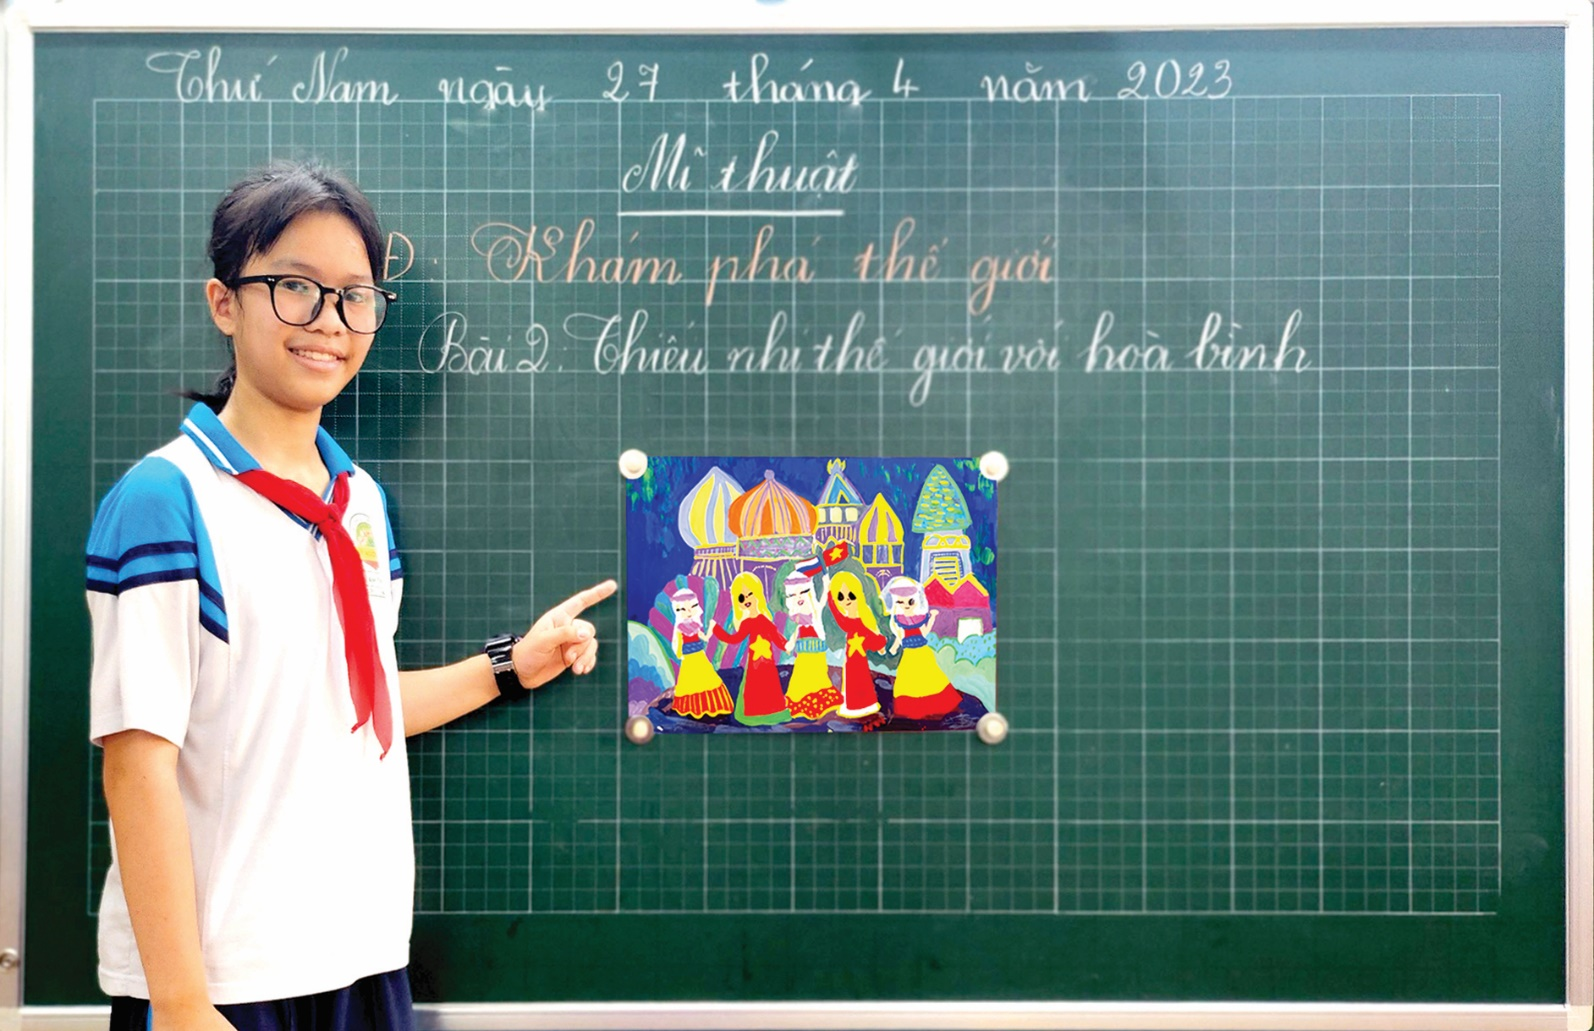 Thứ Năm ngày 27 tháng 4 năm 2023
Mĩ thuật
Đ. Khám phá thế giới
Bài 2: Thiếu nhi thế giới với hoà bình